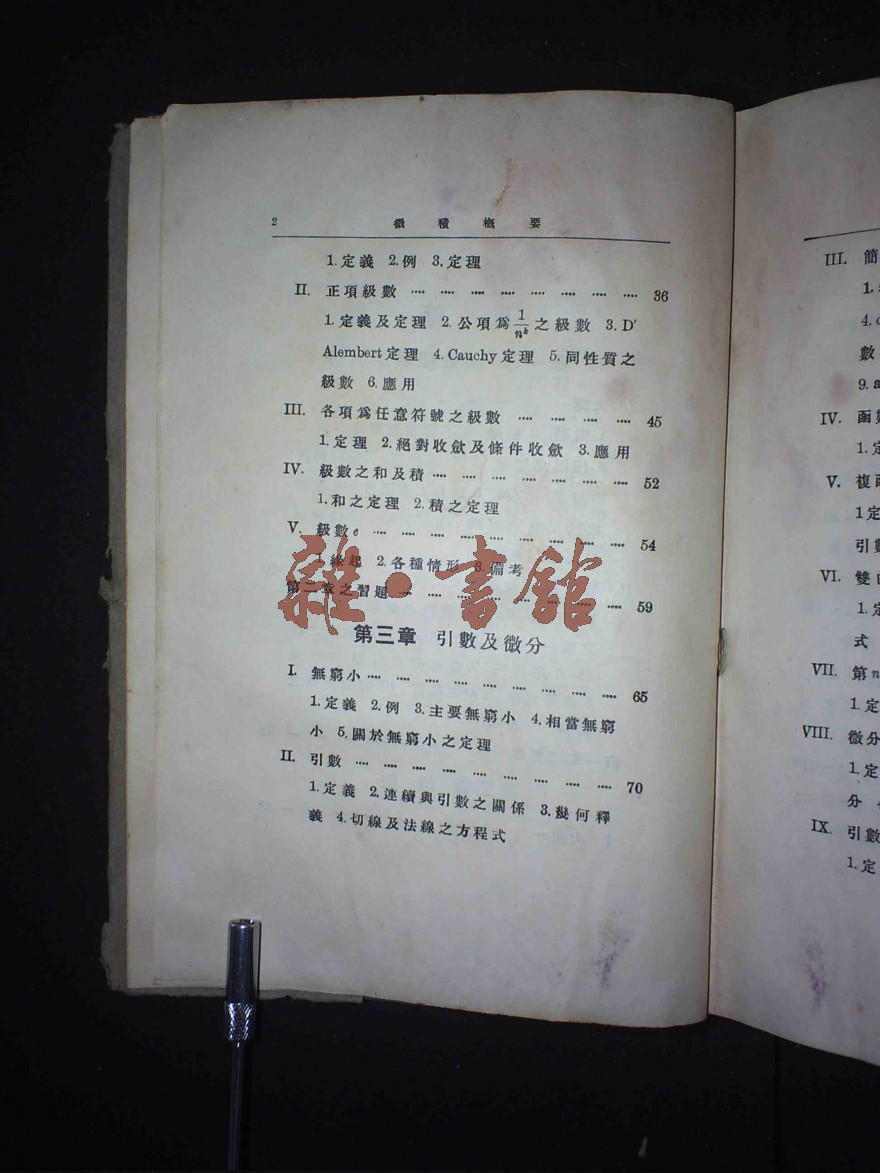 2 微積概要
1.定義 2.例 3.定理
II. 正項級數 ‥‥ ‥‥ ‥‥ ‥‥ ‥‥ ‥‥ ‥‥ ‥‥ 36
1.定義及定理 2.公項爲 1/n^k 之級數 3.D′
Alembert定理 4.Cauchy定理 5.同性質之
級數 6.應用
III. 各項爲任意符號之級數 ‥‥ ‥‥ ‥‥ ‥‥ 45
1.定理 2.絕對收斂及條件收斂 3.應用
IV. 級數之和及積 ‥‥ ‥‥ ‥‥ ‥‥ ‥‥ ‥‥ ‥‥ 52
1.和之定理 2.積之定理
V. 級數e ‥‥ ‥‥ ‥‥ ‥‥ ‥‥ ‥‥ ‥‥ ‥‥ ‥‥ 54
1.緣起 2.各種情形 3.備考
第二章之習題 ‥‥ ‥‥ ‥‥ ‥‥ ‥‥ ‥‥ ‥‥ ‥‥ 59
雜·書館
第三章 引數及微分
I. 無窮小 ‥‥ ‥‥ ‥‥ ‥‥ ‥‥ ‥‥ ‥‥ ‥‥ ‥‥ 65
1.定義 2.例 3.主要無窮小 4.相當無窮
小 5.關於無窮小之定理
II. 引數 ‥‥ ‥‥ ‥‥ ‥‥ ‥‥ ‥‥ ‥‥ ‥‥ ‥‥ 70
1.定義 2.連續與引數之關係 3.幾何釋
義 4.切線及法線之方程式
III. 簡
1.
4.
數
9.a
IV. 函數
1.定
V. 複函
1定
引數
VI. 雙曲
1.定
式
VII. 第n
1.定
VIII. 微分
1.定
分
IX. 引數
1.定